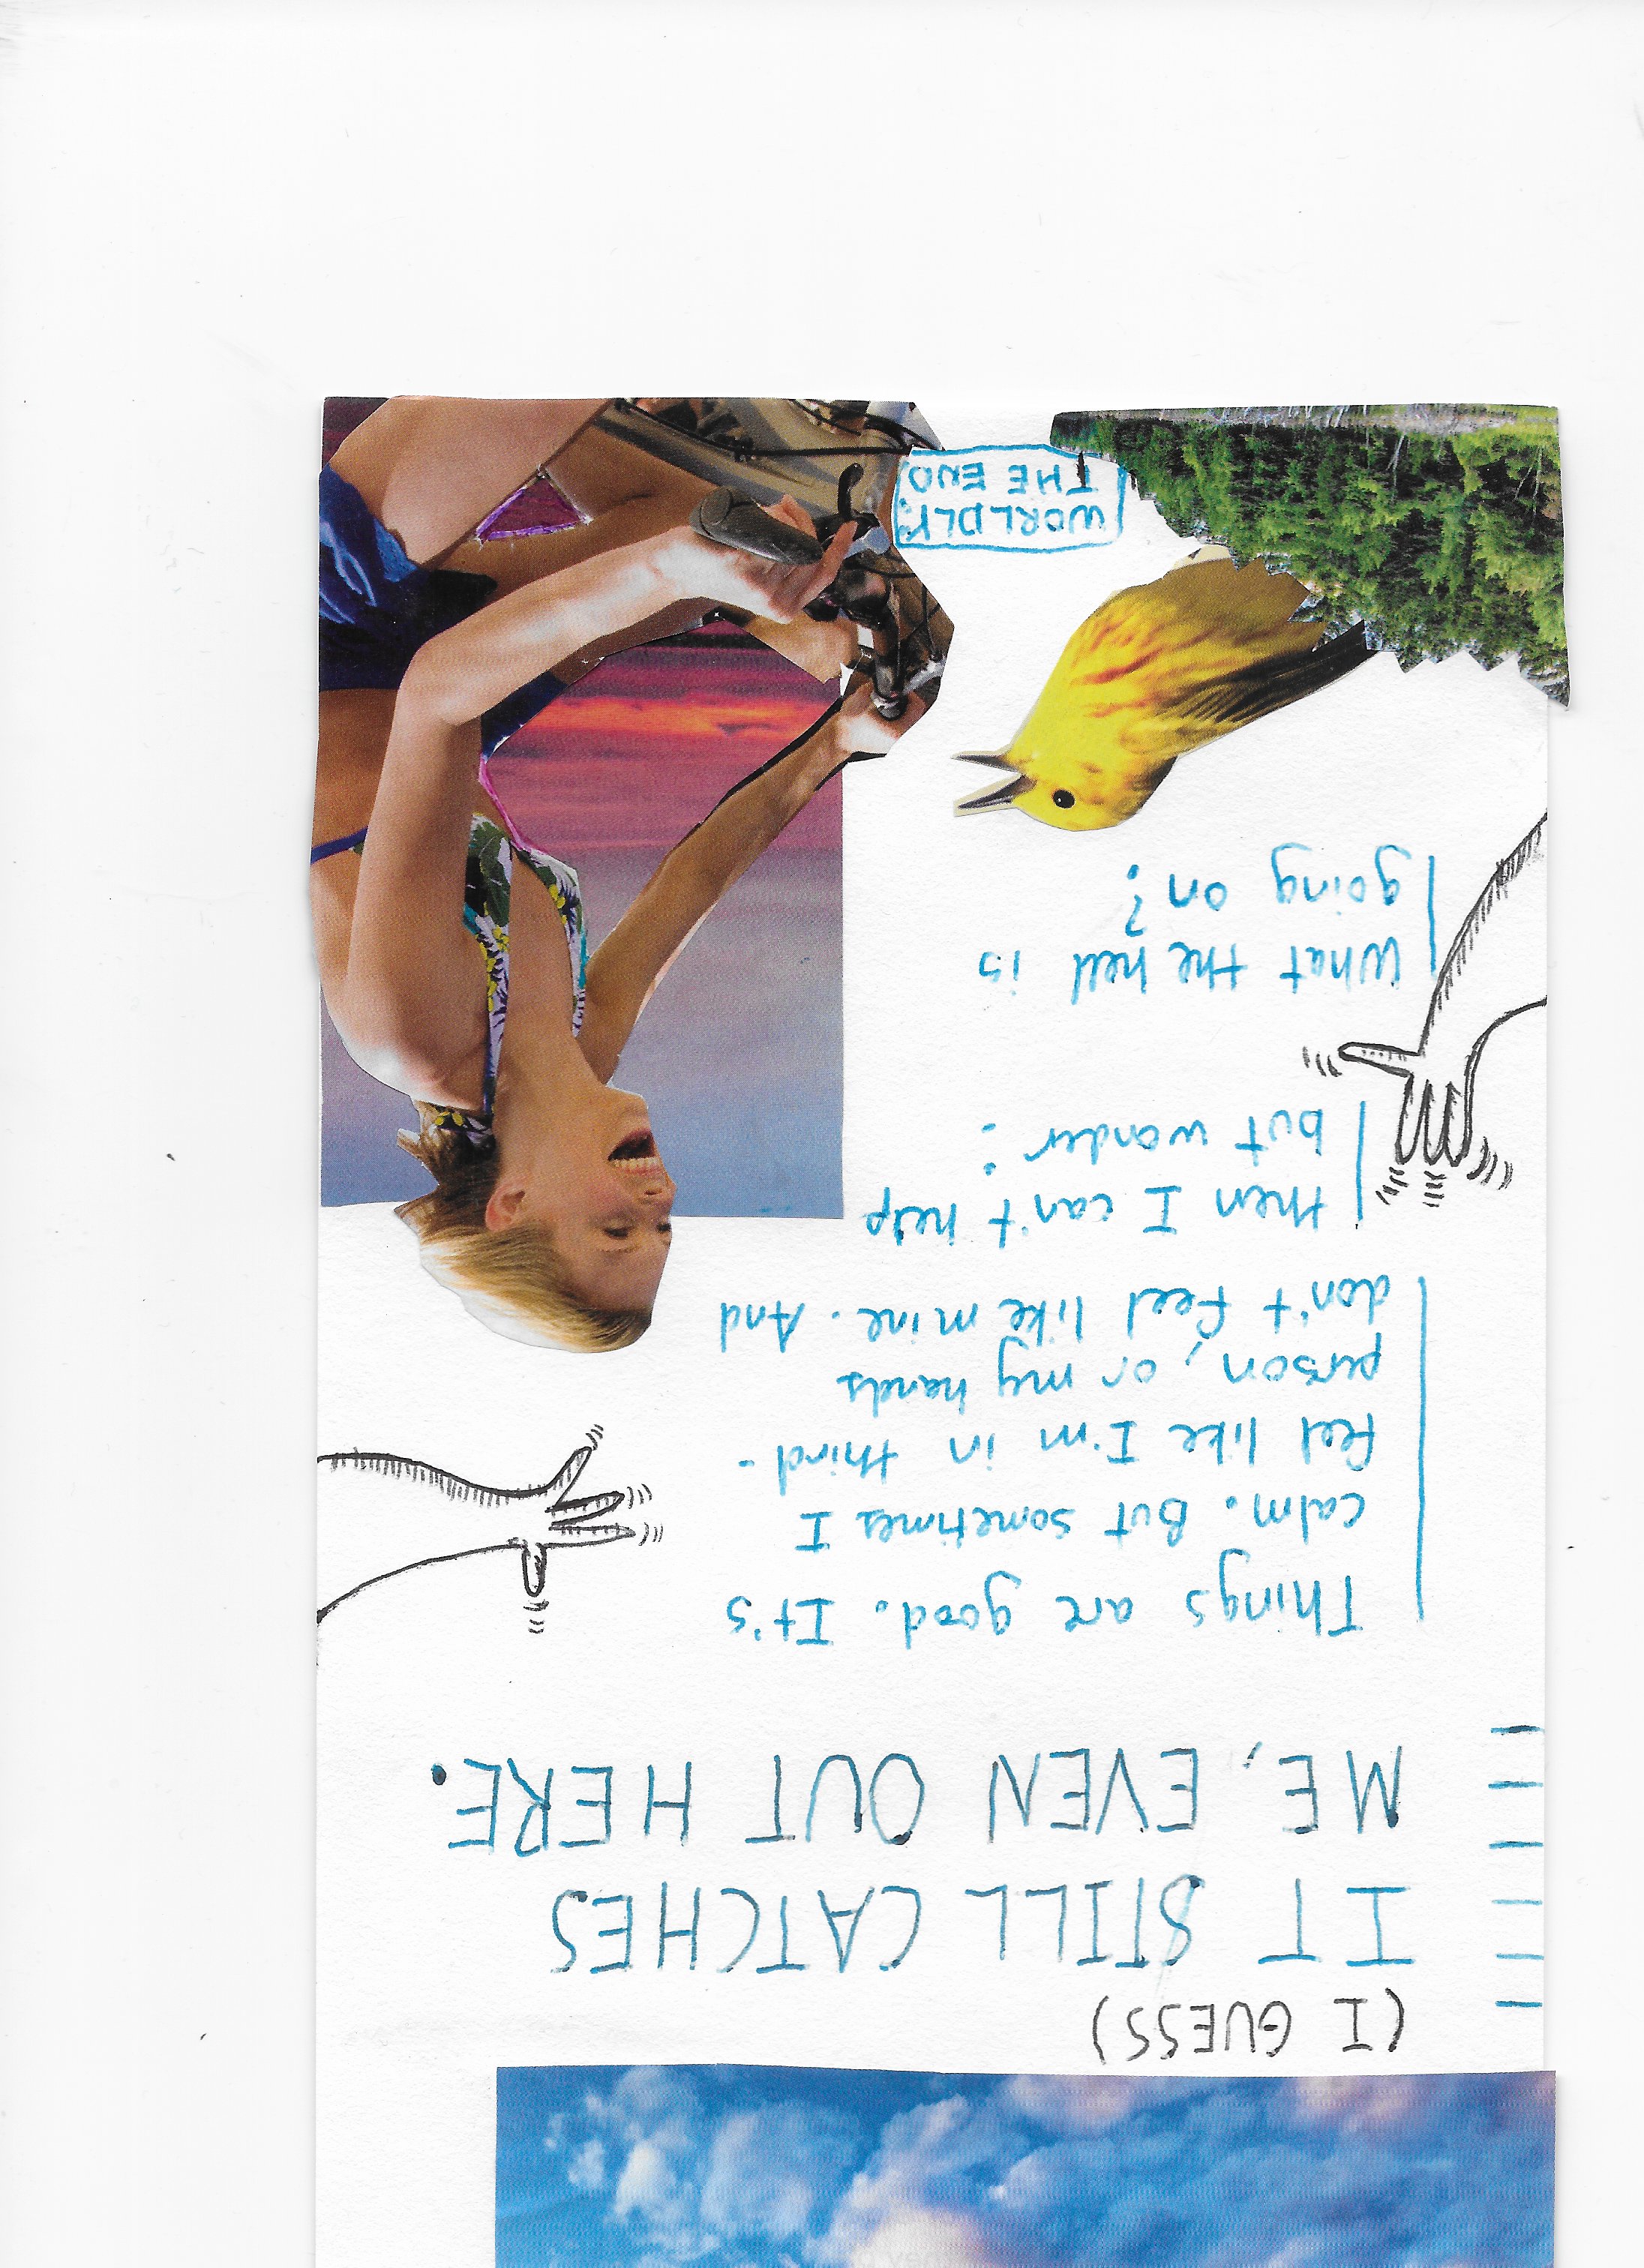 (I GUESS)
IT STILL CATCHES
ME, EVEN OUT HERE.
Things are good. It's
calm. But sometimes I
feel like I'm in third-
person, or my hands
don't feel like mine. And
then I can't help
but wonder:
What the hell is
going on?
WORLDLY:
THE END